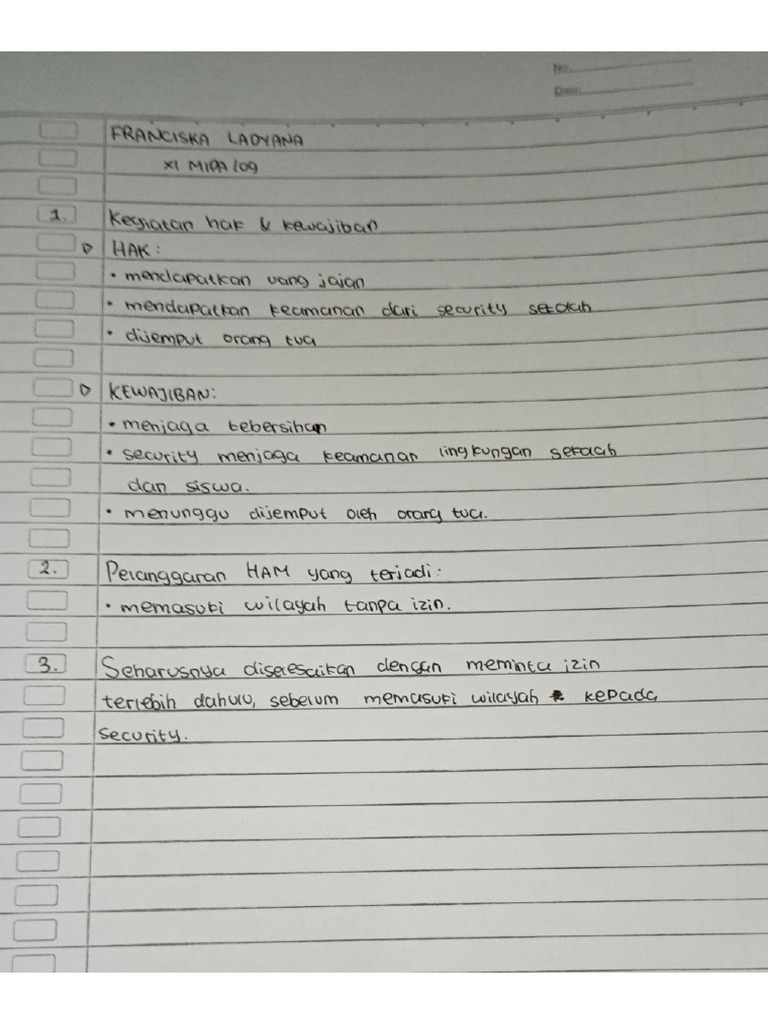 No.
Date:
FRANCISKA LADYANA
XI MIPA / 09
1. Kegiatan hak & kewajiban
▷ HAK:
• mendapatkan uang jajan
• mendapatkan keamanan dari security sekolah
• dijemput orang tua
▷ KEWAJIBAN:
• menjaga kebersihan
• security menjaga keamanan lingkungan sekolah
dan siswa.
• menunggu dijemput oleh orang tua.
2. Pelanggaran HAM yang terjadi:
• memasuki wilayah tanpa izin.
3. Seharusnya diselesaikan dengan meminta izin
terlebih dahulu, sebelum memasuki wilayah kepada
security.